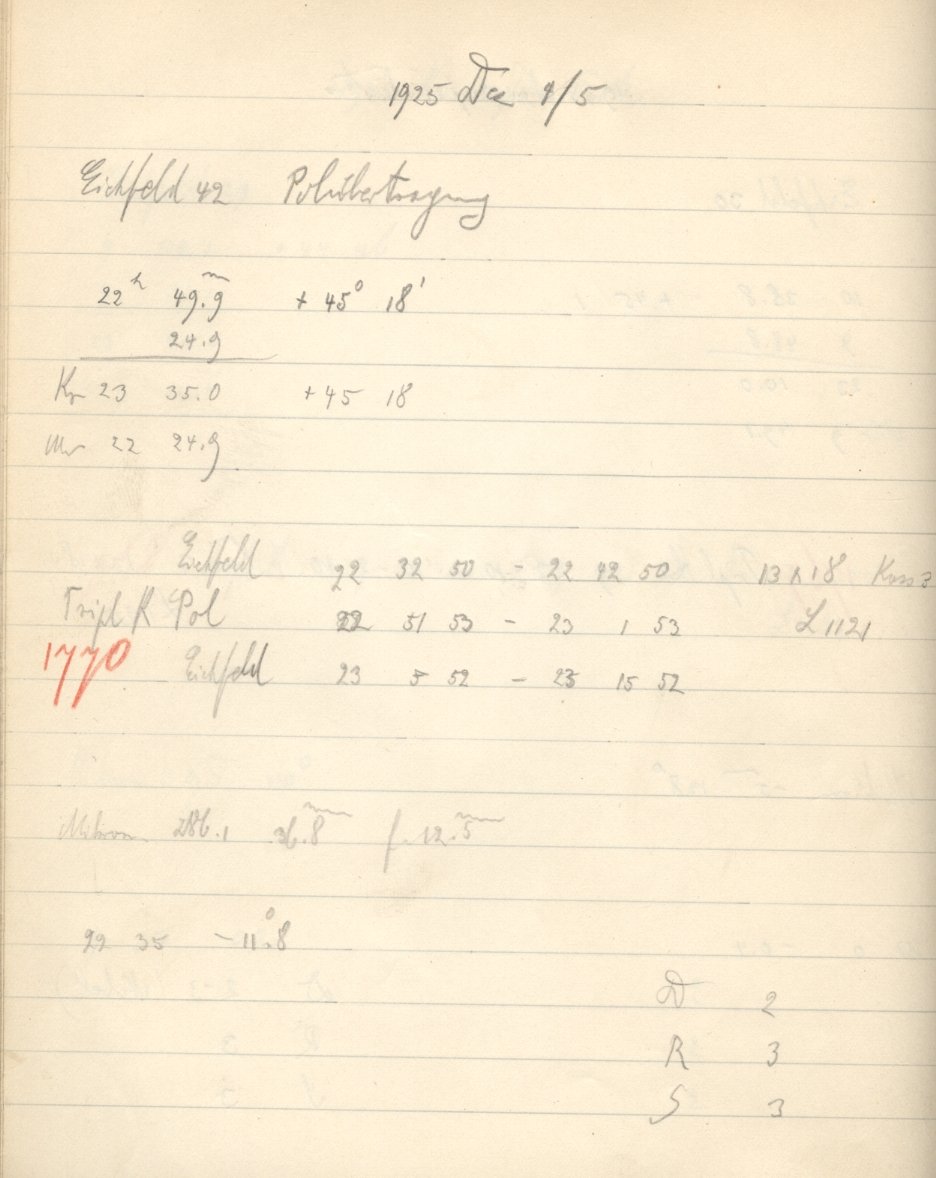 1925 Dez 4/5
Eichfeld 42 Polübertragung
22ʰ 49.9ᵐ + 45° 18'
24.9
23 35.0 + 45 18
22 24.9
Eichfeld 22 32 50 - 22 42 50 13 h 18 Kass 3
Tripl R Pol 22 51 53 - 23 1 53 L 1121
1770 Eichfeld 23 5 52 - 23 15 52
286.1 36.8ᵐᵐ f. 12.5ᵐᵐ
22 35 - 11.8°
D 2
R 3
S 3